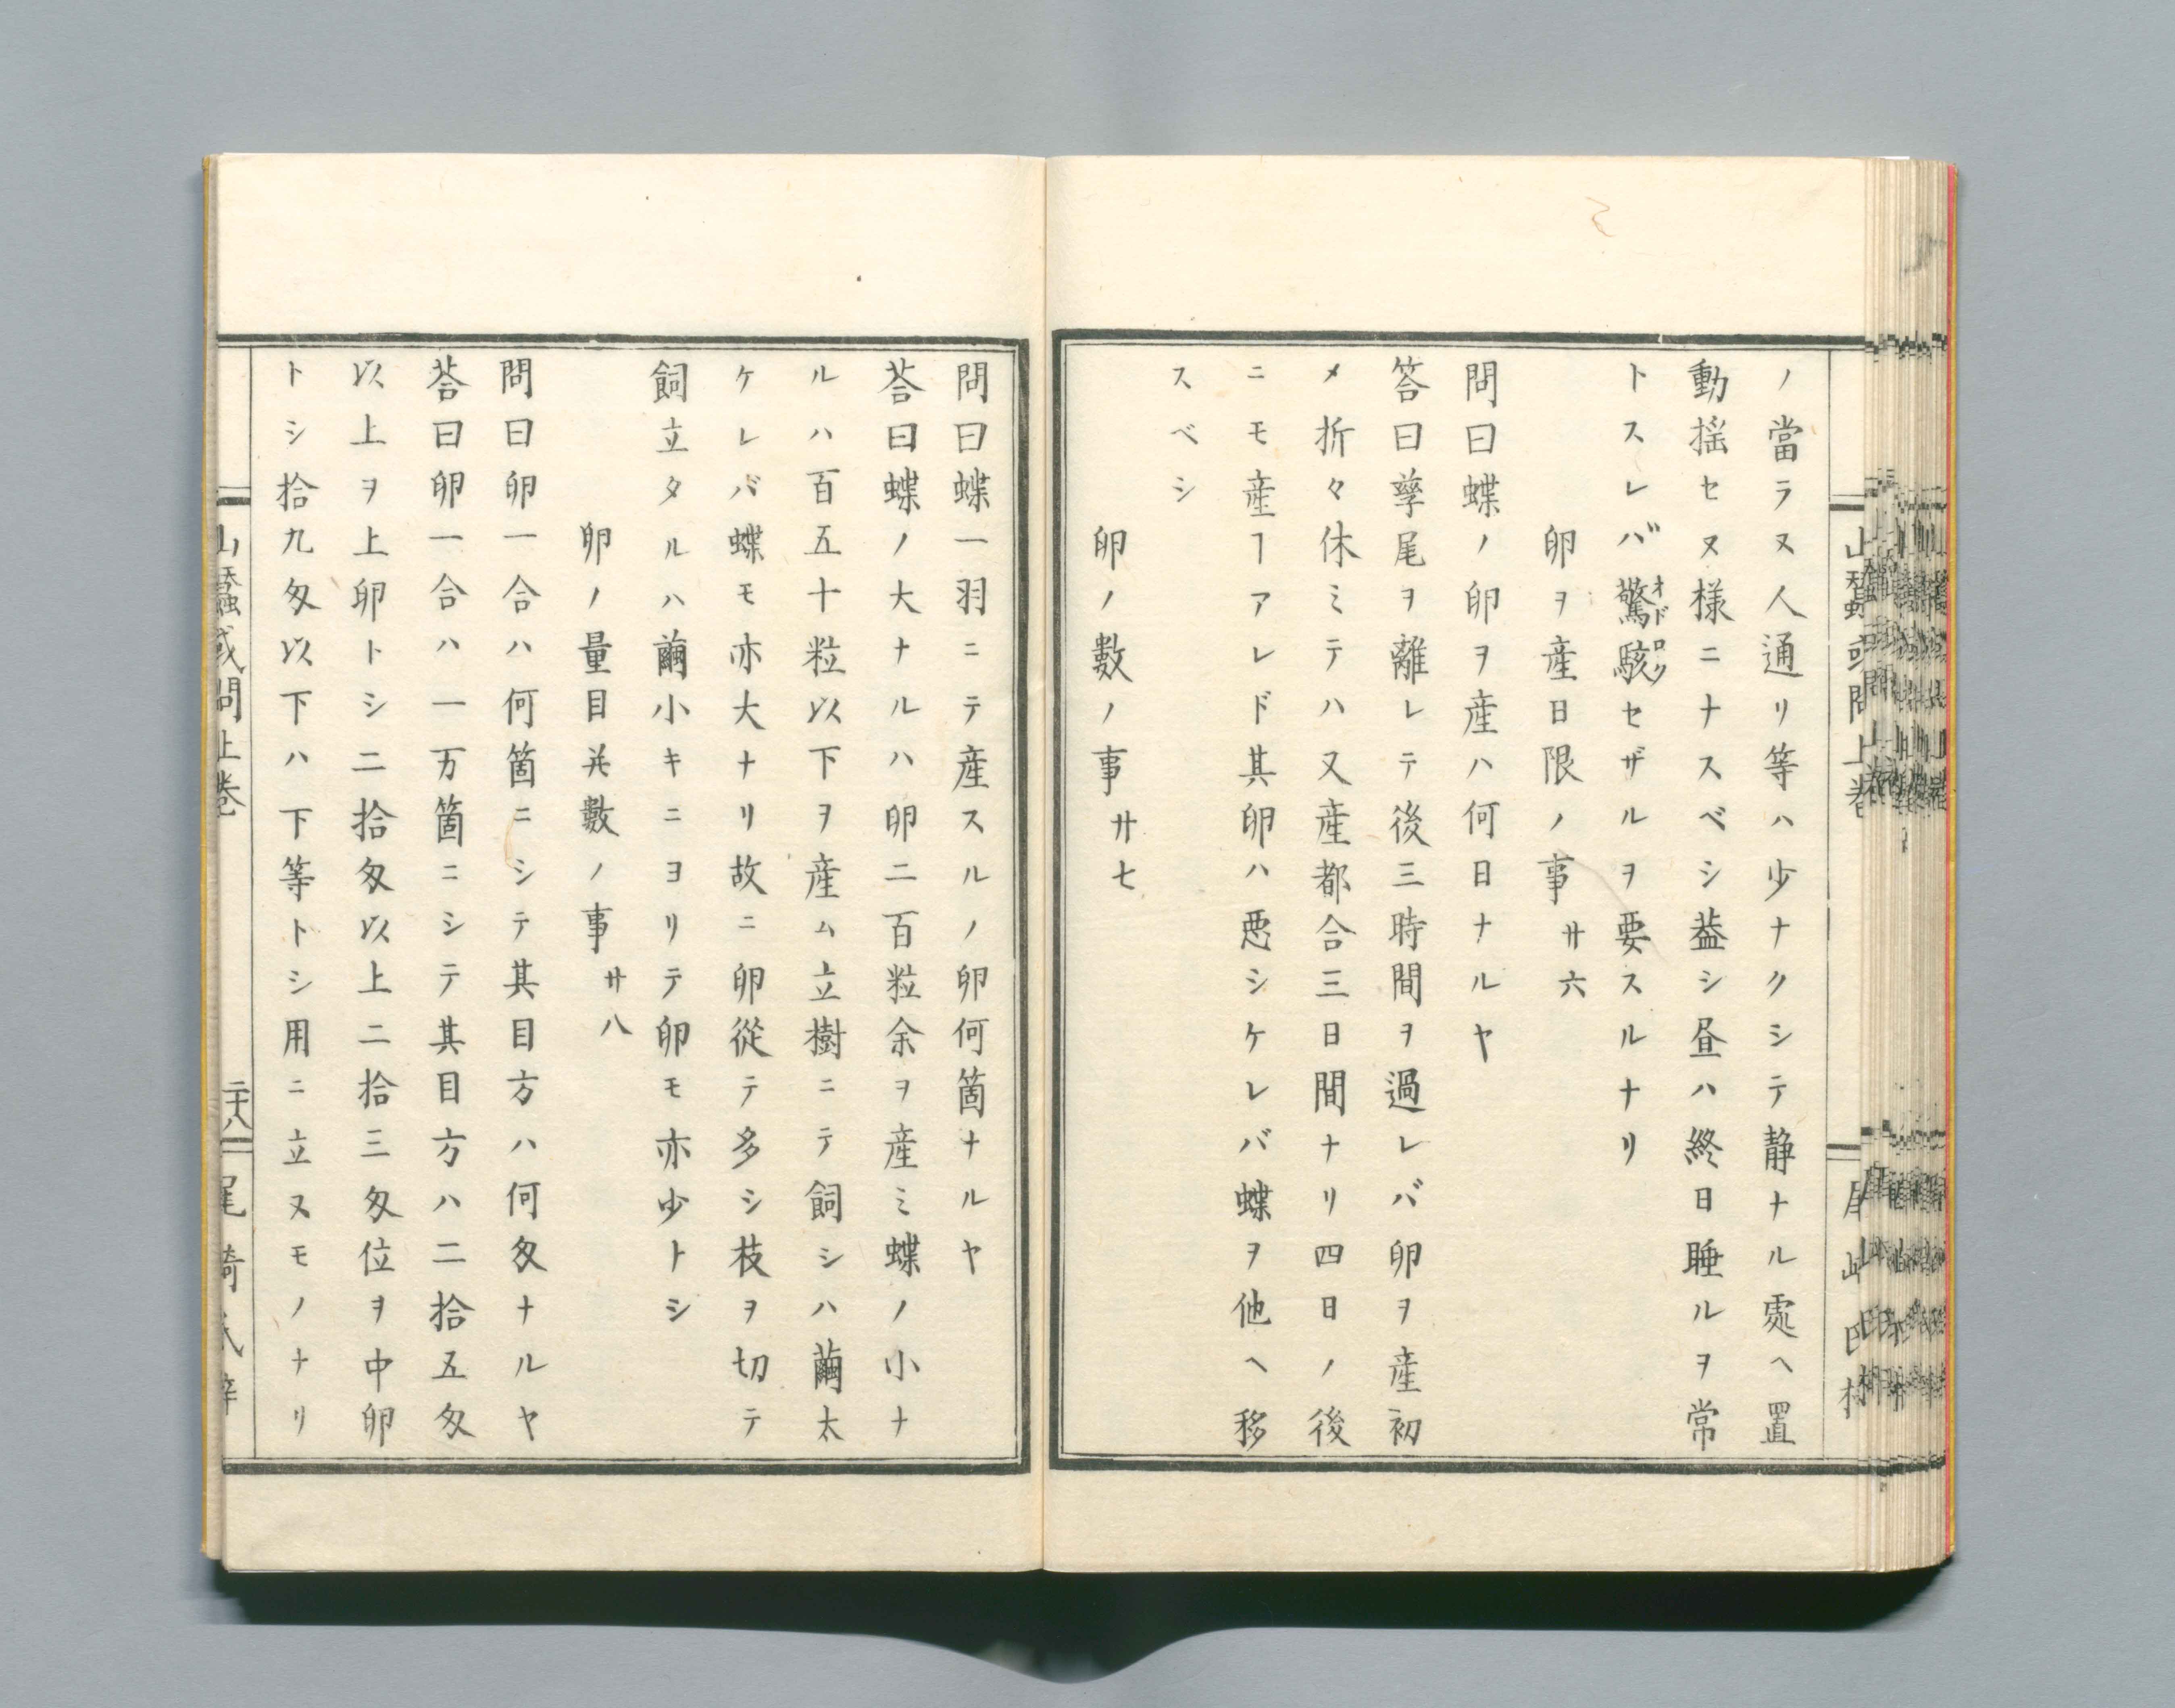 ノ當ラヌ人通リ等ハ少ナクシテ静ナル處ヘ置
動揺セヌ様ニナスベシ葢シ昼ハ終日睡ルヲ常
トスレバ驚駭セザルヲ要スルナリ
オドロク
卵ヲ産日限ノ事 廿六
問曰蝶ノ卵ヲ産ハ何日ナルヤ
答曰孳尾ヲ離レテ後三時間ヲ過レバ卵ヲ産初
メ折々休ミテハ又産都合三日間ナリ四日ノ後
ニモ産ヿアレド其卵ハ悪シケレバ蝶ヲ他ヘ移
スベシ
卵ノ數ノ事 廿七
問曰蝶一羽ニテ産スルノ卵何箇ナルヤ
荅曰蝶ノ大ナルハ卵二百粒余ヲ産ミ蝶ノ小ナ
ルハ百五十粒以下ヲ産ム立樹ニテ飼シハ繭太
ケレバ蝶モ亦大ナリ故ニ卵從テ多シ枝ヲ切テ
飼立タルハ繭小キニヨリテ卵モ亦少トシ
卵ノ量目并數ノ事 廿八
問曰卵一合ハ何箇ニシテ其目方ハ何匁ナルヤ
荅曰卵一合ハ一万箇ニシテ其目方ハ二拾五匁
以上ヲ上卵トシ二拾匁以上二拾三匁位ヲ中卵
トシ拾九匁以下ハ下等トシ用ニ立ヌモノナリ
山蠶或問上巻
二十八
尾﨑氏梓